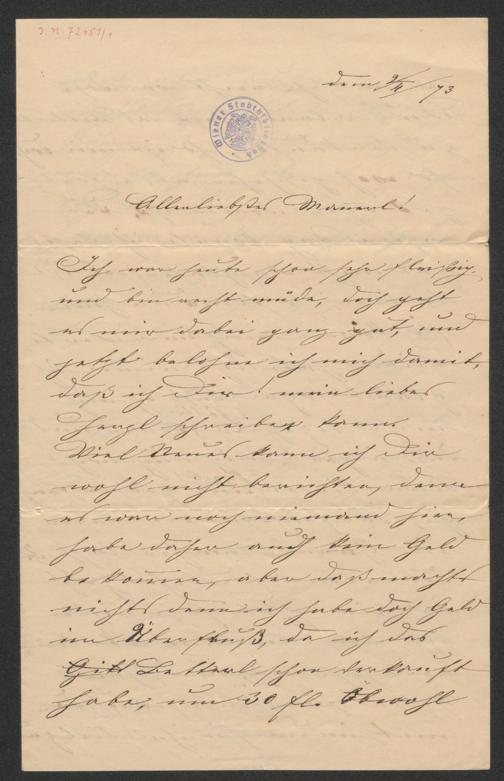 J. N. 72451/1
dem 9/4 73
Wiener Stadtbibliothek
Allerliebstes Mamerl!
Ich war heute schon sehr fleißig,
und bin recht müde, doch geht
es mir dabei ganz gut, und
jetzt belohne ich mich damit,
daß ich Dir! mein liebes
Herzl schreiben kann.
Viel Neues kann ich Dir
wohl nicht berichten, denn
es war noch niemand hier,
habe daher auch kein Geld
bekommen, aber daß machts
nichts denn ich habe doch Geld
im Überfluß, da ich das
Gitt Betterl schon verkauft
habe, um 30 fl. Obwohl